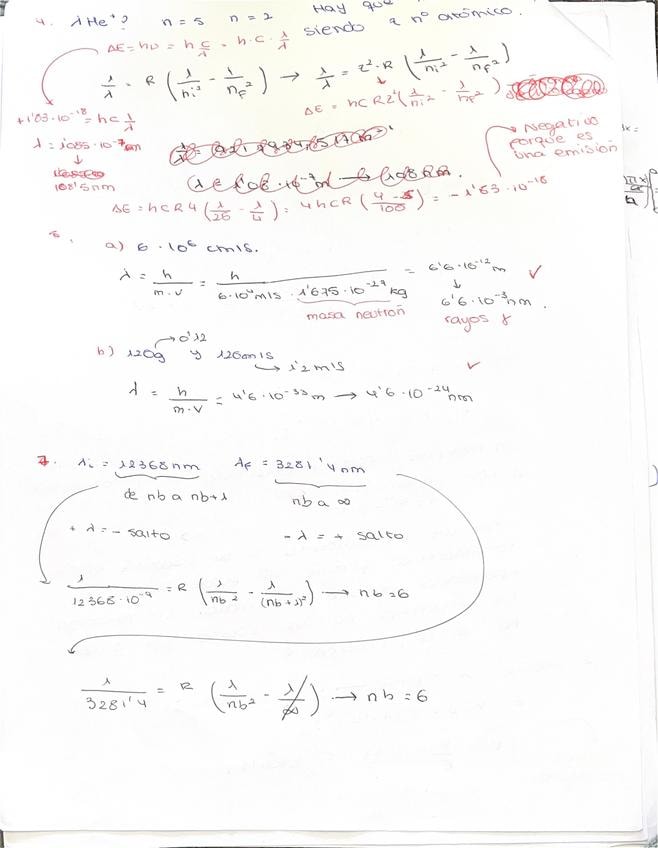 Hay que
4. λHe⁺? n = 5 n = 2 siendo z nº atómico.
ΔE = hν = h c/λ = h·c·1/λ
1/λ = R (1/ni² - 1/nf²) → 1/λ = z²·R (1/ni² - 1/nf²)
ΔE = hcRz² (1/ni² - 1/nf²)
+1'83·10⁻¹⁸ = hc 1/λ
λ = 1'085·10⁻⁷m
↓
108'5 nm
Negativo
porque es
una emisión
ΔE = hcR4 (1/25 - 1/4) = 4hcR (4-25/100) = -1'83·10⁻¹⁸
a) 6·10⁶ cm/s.
λ = h/m·v = h/6·10⁴m/s · 1'675·10⁻²⁷kg = 6'6·10⁻¹² m ✓
masa neutrón
↓
6'6·10⁻³ nm.
rayos γ
→ 0'12
b) 120g y 120cm/s ✓
→ 1'2 m/s
λ = h/m·v = 4'6·10⁻³³ m → 4'6·10⁻²⁴ nm
7. λi = 12368 nm λf = 3281'4 nm
de nb a nb+1 nb a ∞
+ λ = - salto - λ = + salto
1/12368·10⁻⁹ = R (1/nb² - 1/(nb+1)²) → nb = 6
1/3281'4 = R (1/nb² - 1/∞) → nb = 6